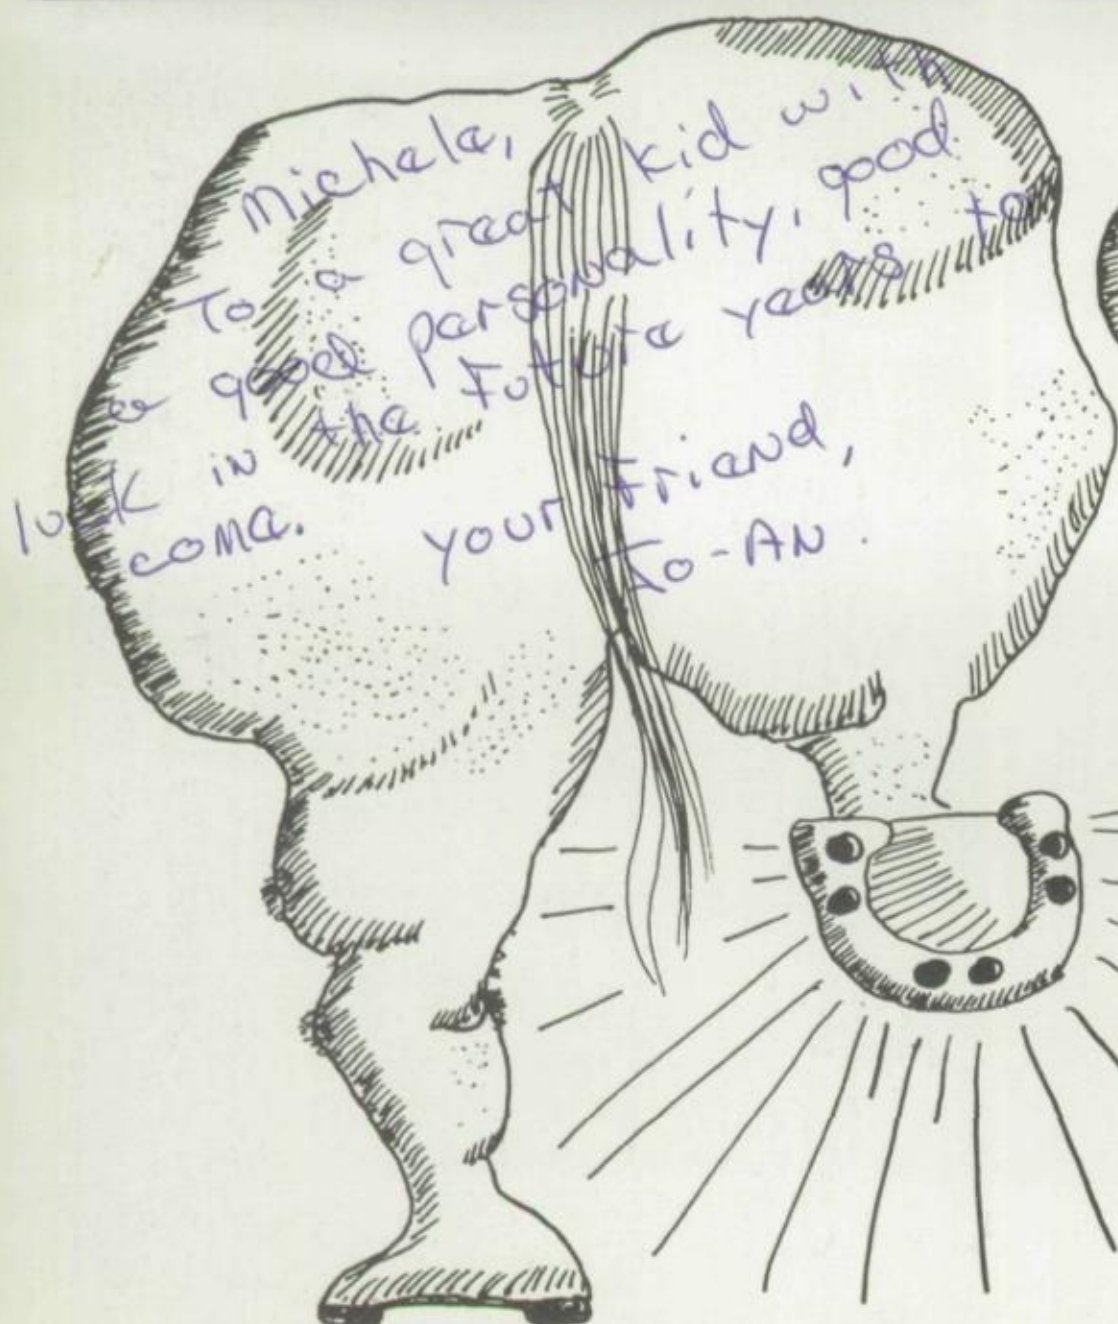 Michele,
To a great kid with
a good personality, good
luck in the Future years to
come.
your Friend,
Jo-AN.